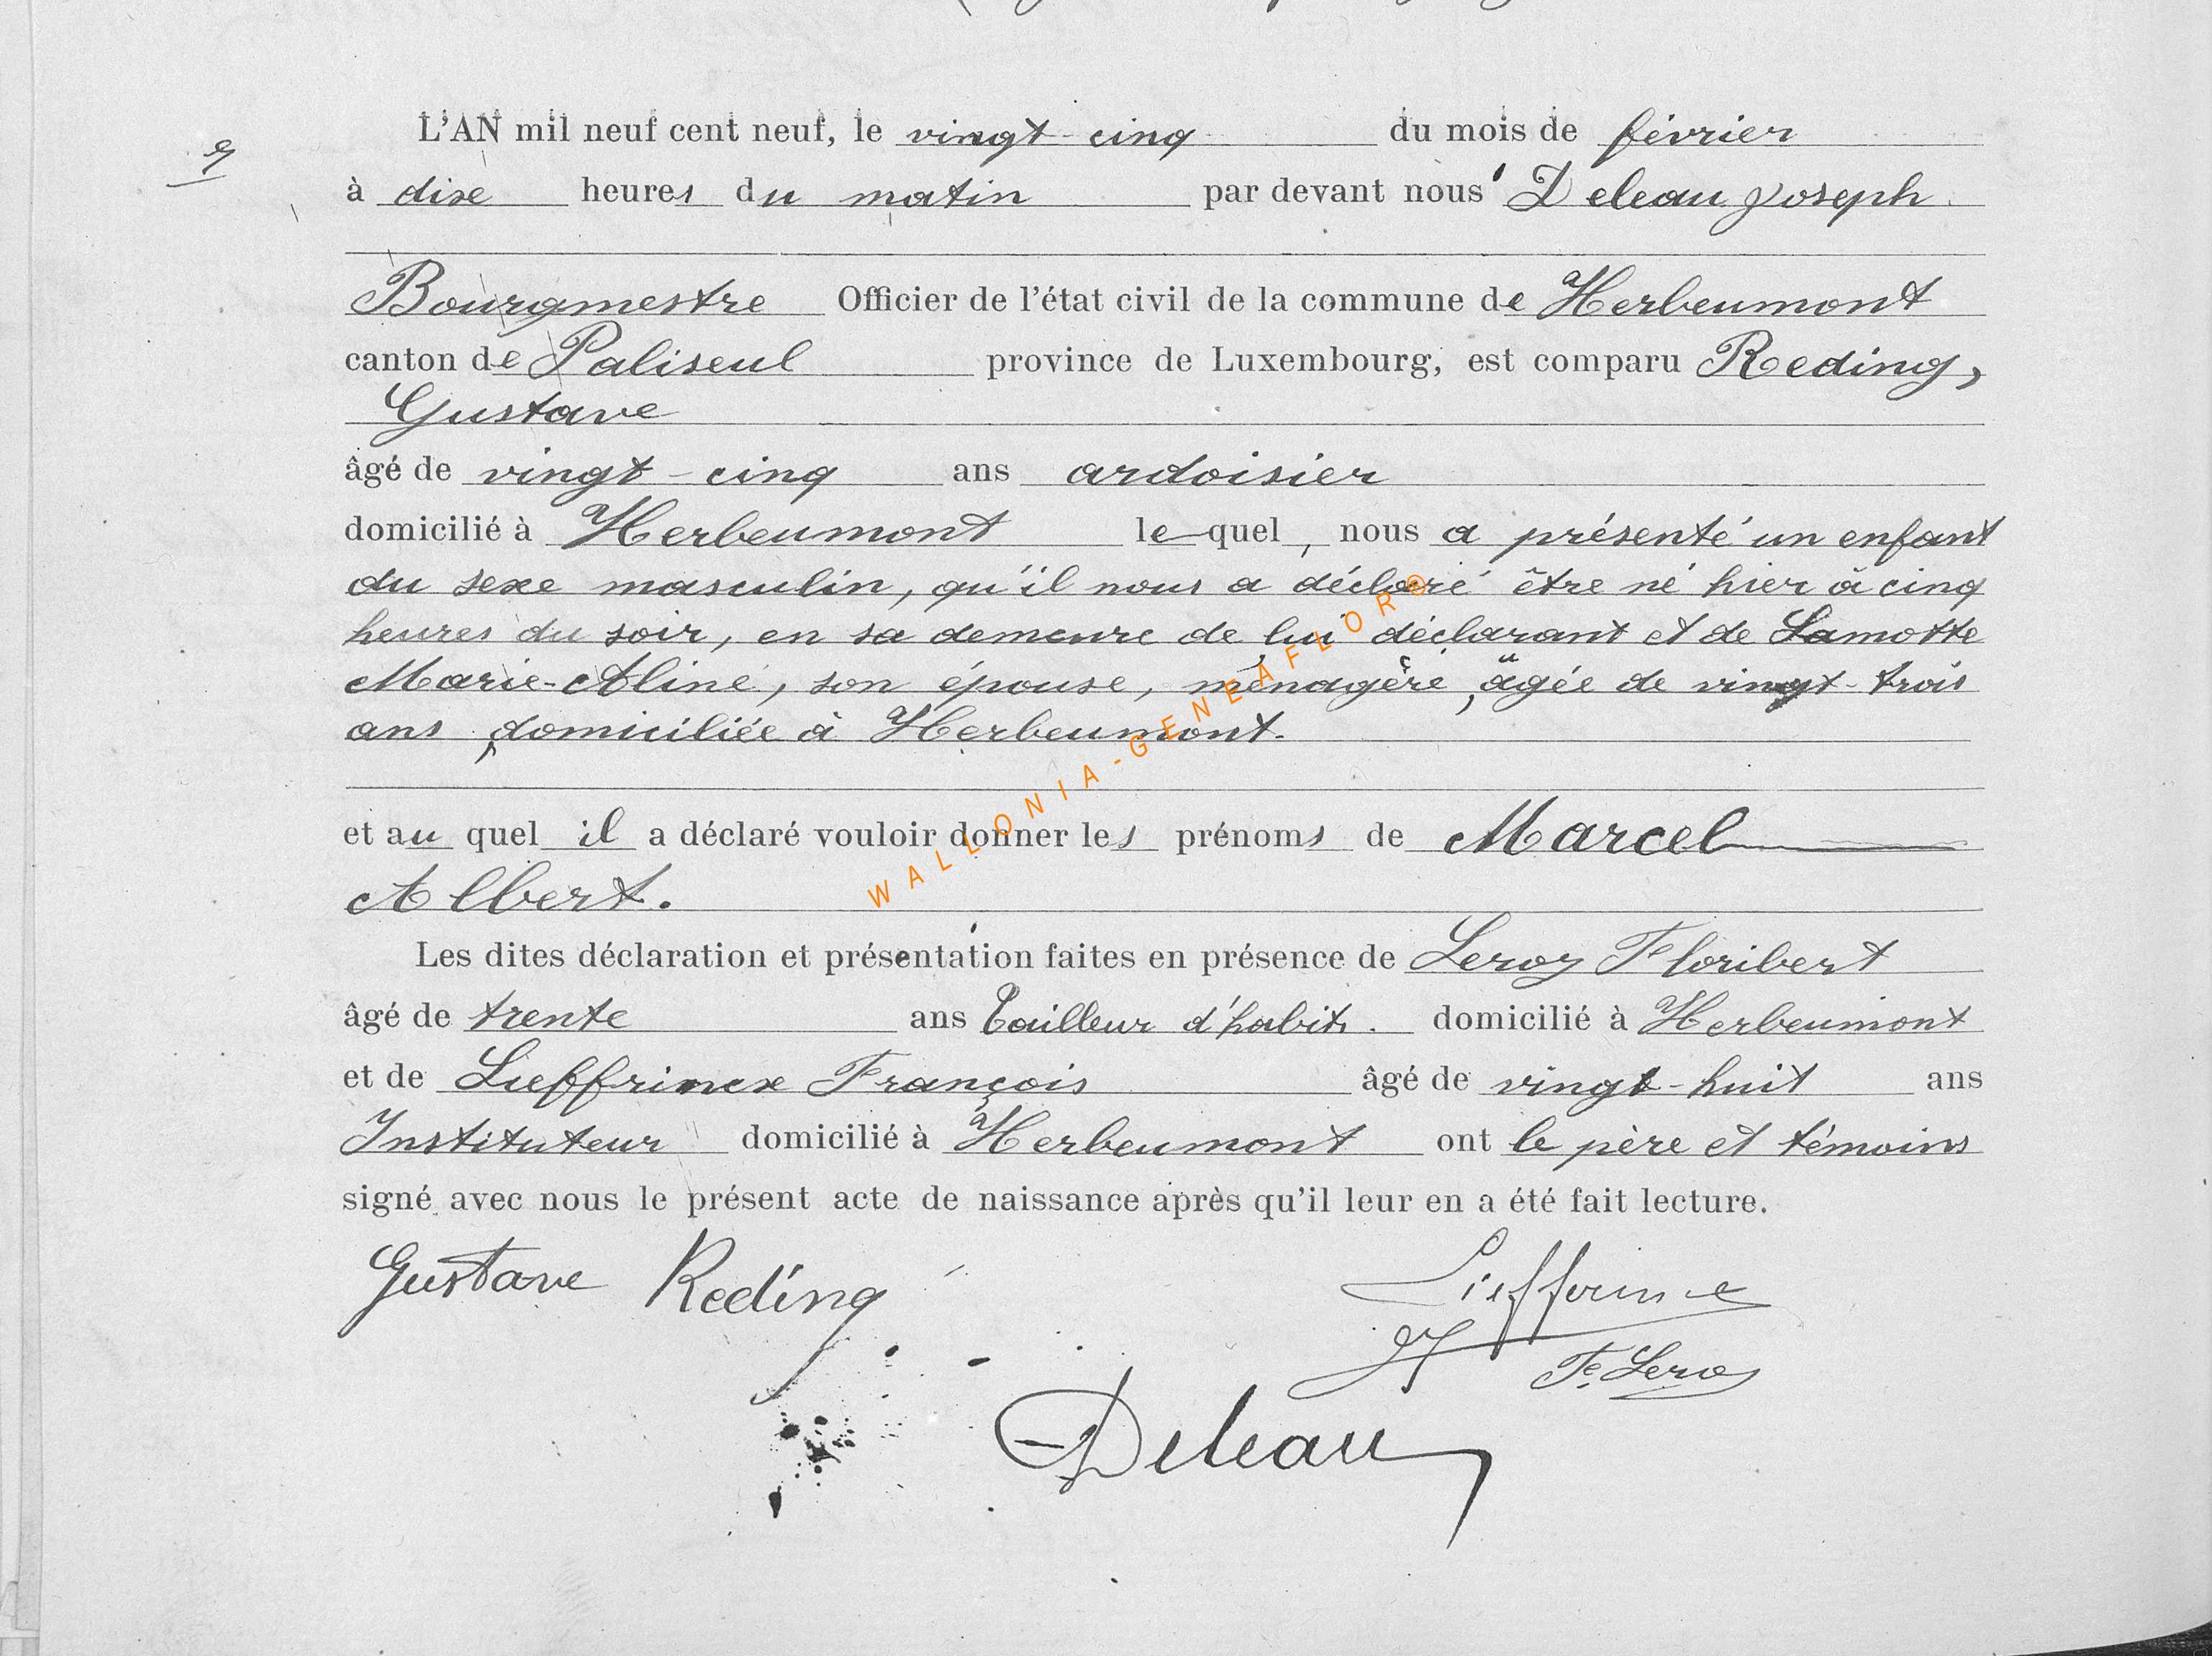 9
L'AN mil neuf cent neuf, le vingt-cinq du mois de février
à dixe heures du matin par devant nous Deleau Joseph
Bourgmestre Officier de l'état civil de la commune de Herbeumont
canton de Paliseul province de Luxembourg, est comparu Reding,
Gustave
âgé de vingt-cinq ans ardoisier
domicilié à Herbeumont le quel, nous a présenté un enfant
du sexe masculin, qu'il nous a déclaré être né hier à cinq
heures du soir, en sa demeure de lui déclarant et de Lamotte
Marie-Aline, son épouse, ménagère, âgée de vingt-trois
ans, domiciliée à Herbeumont.
et au quel il a déclaré vouloir donner les prénoms de Marcel
Albert.
Les dites déclaration et présentation faites en présence de Leroy Floribert
âgé de trente ans Tailleur d'habits. domicilié à Herbeumont
et de Lieffrinex François âgé de vingt-huit ans
Instituteur domicilié à Herbeumont ont le père et témoins
signé avec nous le présent acte de naissance après qu'il leur en a été fait lecture.
Gustave Reding
F. Leroy
Deleau
WALLONIA-GENEAFLOR©